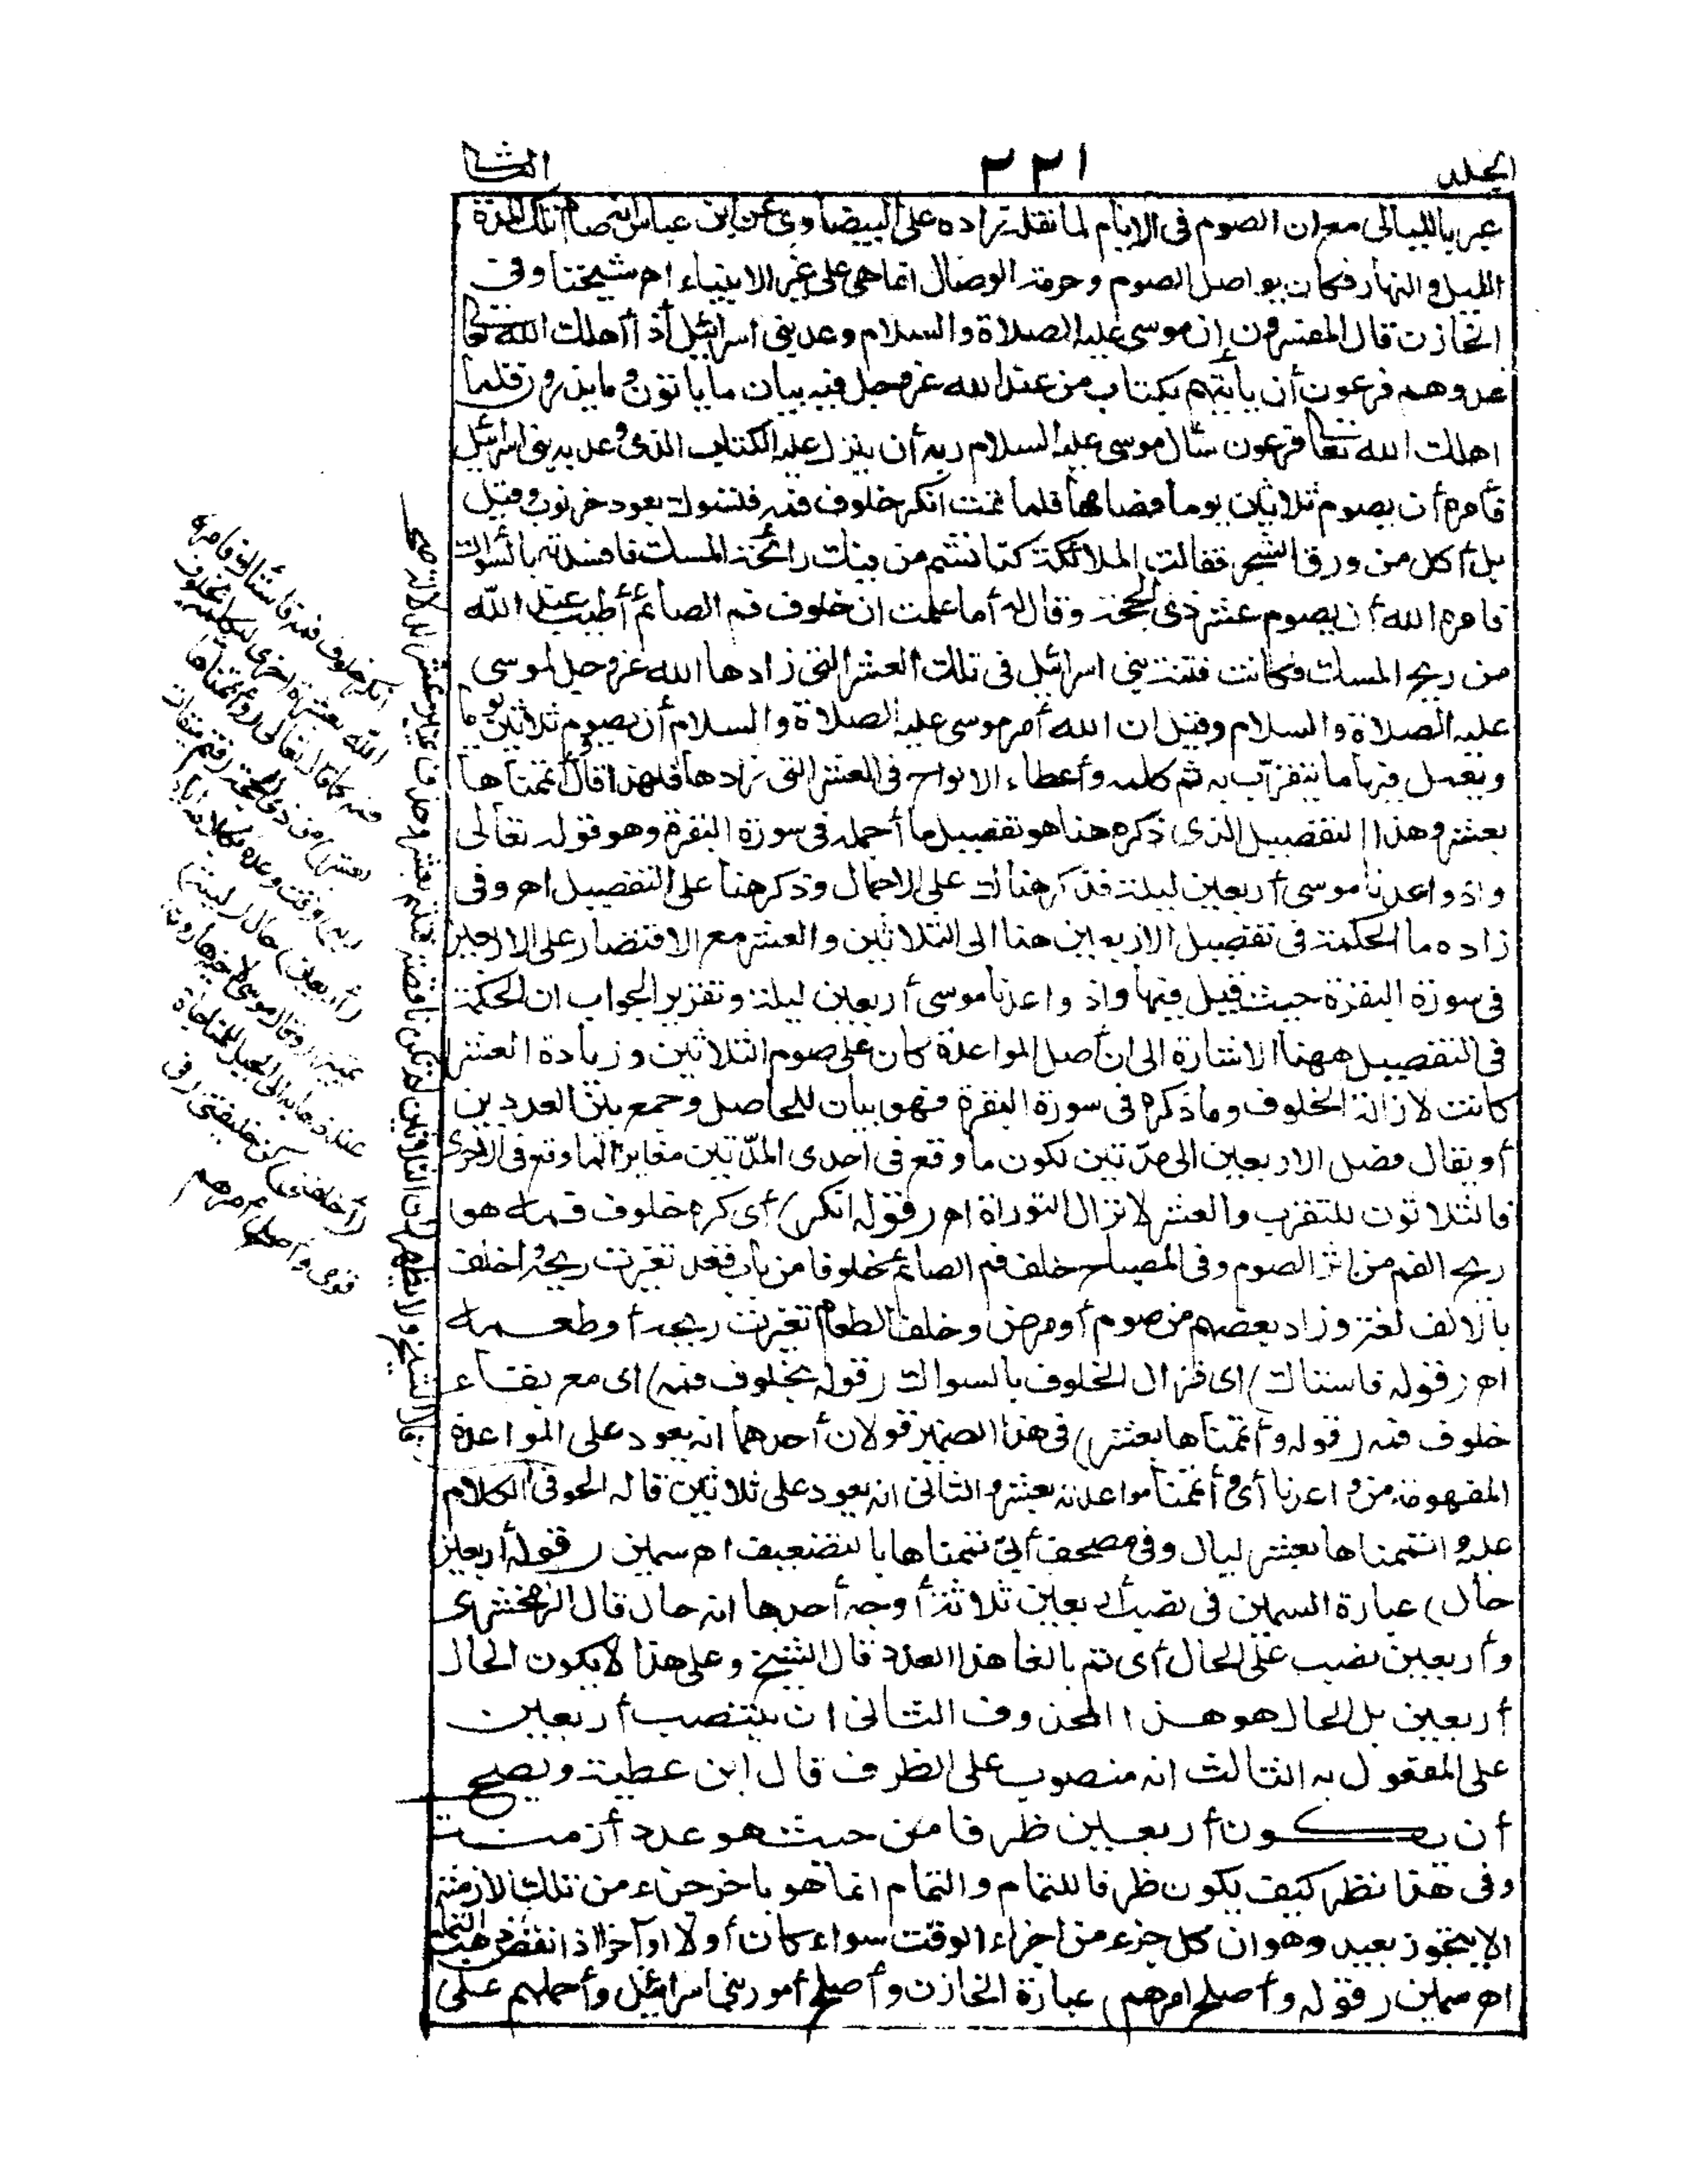 المجلد ٢٢١ الثا
عبر بالليالى مع ان الصوم فى الايام لما نقله زاده على البيضاوى عن ابن عباس انه صام تلك المدة
الليل والنهار فكان يواصل الصوم وحرمة الوصال انما هى على غير الانبياء اھ شيخنا وفى
الخازن قال المفسرون إن موسى عليه الصلاة والسلام وعد بنى اسرائيل أذا أهلك الله تعا
عدوهم فرعون أن يأتيهم بكتاب من عند الله عز وجل فيه بيان ما يأتون وما يذرون فلما
اهلك الله تعا فرعون سأل موسى عليه السلام ربه أن ينزل عليه الكتاب الذى وعد به بنى اسرائيل
فأمره أن يصوم ثلاثين يوما فصامها فلما تمت انكر خلوف فمه فتسوك بعود خرنوب وقيل
بل أكل من ورق الشجر فقالت الملائكة كنا نشم من فيك رائحة المسك فافسدته بالسواك
فامره الله أن يصوم عشر ذى الحجة وقال له أما علمت ان خلوف فم الصائم أطيب عند الله
من ريح المسك فكانت فتنة بنى اسرائيل فى تلك العشر التى زادها الله عز وجل لموسى
عليه الصلاة والسلام وقيل ان الله أمر موسى عليه الصلاة والسلام أن يصوم ثلاثين يوما
ويعمل فيها ما يتقرب به ثم كلمه وأعطاه الالواح فى العشر التى زادها فلهذا قال وأتممناها
بعشر وهذا التفصيل الذى ذكره هنا هو تفصيل ما أجمله فى سورة البقرة وهو قوله تعالى
واذ واعدنا موسى أربعين ليلة فذكره هناك على الاجمال وذكره هنا على التفصيل اھ وفى
زاده ما الحكمة فى تفصيل الاربعين هنا الى الثلاثين والعشر مع الاقتصار على الاربعين
فى سورة البقرة حيث قيل فيها واذ واعدنا موسى أربعين ليلة وتقرير الجواب ان الحكمة
فى التفصيل ههنا الاشارة الى ان أصل المواعدة كان على صوم الثلاثين وزيادة العشر
كانت لازالة الخلوف وما ذكره فى سورة البقرة فهو بيان للحاصل وجمع بين العددين
أو يقال فصل الاربعين الى مدتين لكون ما وقع فى احدى المدتين مغايرا لما وقع فى الاخرى
فالثلاثون للتقرب والعشر لانزال التوراة اھ (قوله انكر) أى كره خلوف فمه هو
ريح الفم من اثر الصوم وفى المصباح خلف فم الصائم خلوفا من باب قعد تغيرت ريحه واخلف
بالالف لغة وزاد بعضهم من صوم أو مرض وخلف الطعام تغيرت ريحه أو طعمه
اھ (قوله فاستاك) اى فزال الخلوف بالسواك (قوله بخلوف فمه) اى مع بقاء
خلوف فمه (قوله وأتممناها بعشر) فى هذا الضمير قولان أحدهما انه يعود على المواعدة
المفهومة من واعدنا أى وأتممنا مواعدته بعشر والثانى انه يعود على ثلاثين قاله الحوفى
وأتممناها بعشر ليال وفى مصحف أبىّ تممناها بالتضعيف اھ سمين (قوله أربعين
حال) عبارة السمين فى نصب أربعين ثلاثة أوجه أحدها انه حال قال الزمخشرى
وأربعين نصب على الحال أى تم بالغا هذا العدد قال الشيخ وعلى هذا لا يكون الحال
أربعين بل الحال هو هذا المحذوف الثانى ان ينتصب أربعين
على المفعول به الثالث انه منصوب على الظرف قال ابن عطية ويصح
أن يكون أربعين ظرفا من حيث هو عدد أزمنة
وفى هذا نظر كيف يكون ظرفا للتمام والتمام انما هو باخر جزء من تلك الازمنة
الا بتجوز بعيد وهو ان كل جزء من اجزاء الوقت سواء كان أولا او آخرا اذا نقص ذهب التمام
اھ سمين (قوله وأصلح امرهم) عبارة الخازن وأصلح أمور بنى اسرائيل وأحملهم على
انكر خلوف فمه فاستاك فأمره
الله بعشرة اخرى ليكلمه بخلوف
فمه كما قال تعالى (وأتممناها
بعشر) من ذى الحجة (فتم ميقات
ربه) وقت وعده بكلامه اياه
(أربعين) حال (ليلة)
تمييز (وقال موسى لاخيه هارون)
عند ذهابه الى الجبل للمناجاة
(أخلفنى) كن خليفتى (فى
قومى وأصلح) أمرهم